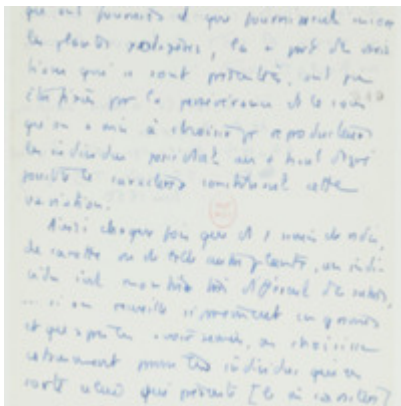 qui ont fournies et que fournissent encore
les plantes potagères, la part de
tions qui se sont présentées, ont pu
être fixées par la persévérance et le soin
qu'on a mis à choisir pr reproducteurs
les individus possédant au + haut degré
possible le caractère constituant cette
variation.
Ainsi chaque fois que d's 1 semis de
de carotte ou de toute autre plante, un indi-
vidu s'est montré très différent des autres,
... si on recueille séparément ces graines
et que après les avoir semées, on choisisse
uniquement pour les individus que
sorte celui qui présente [le